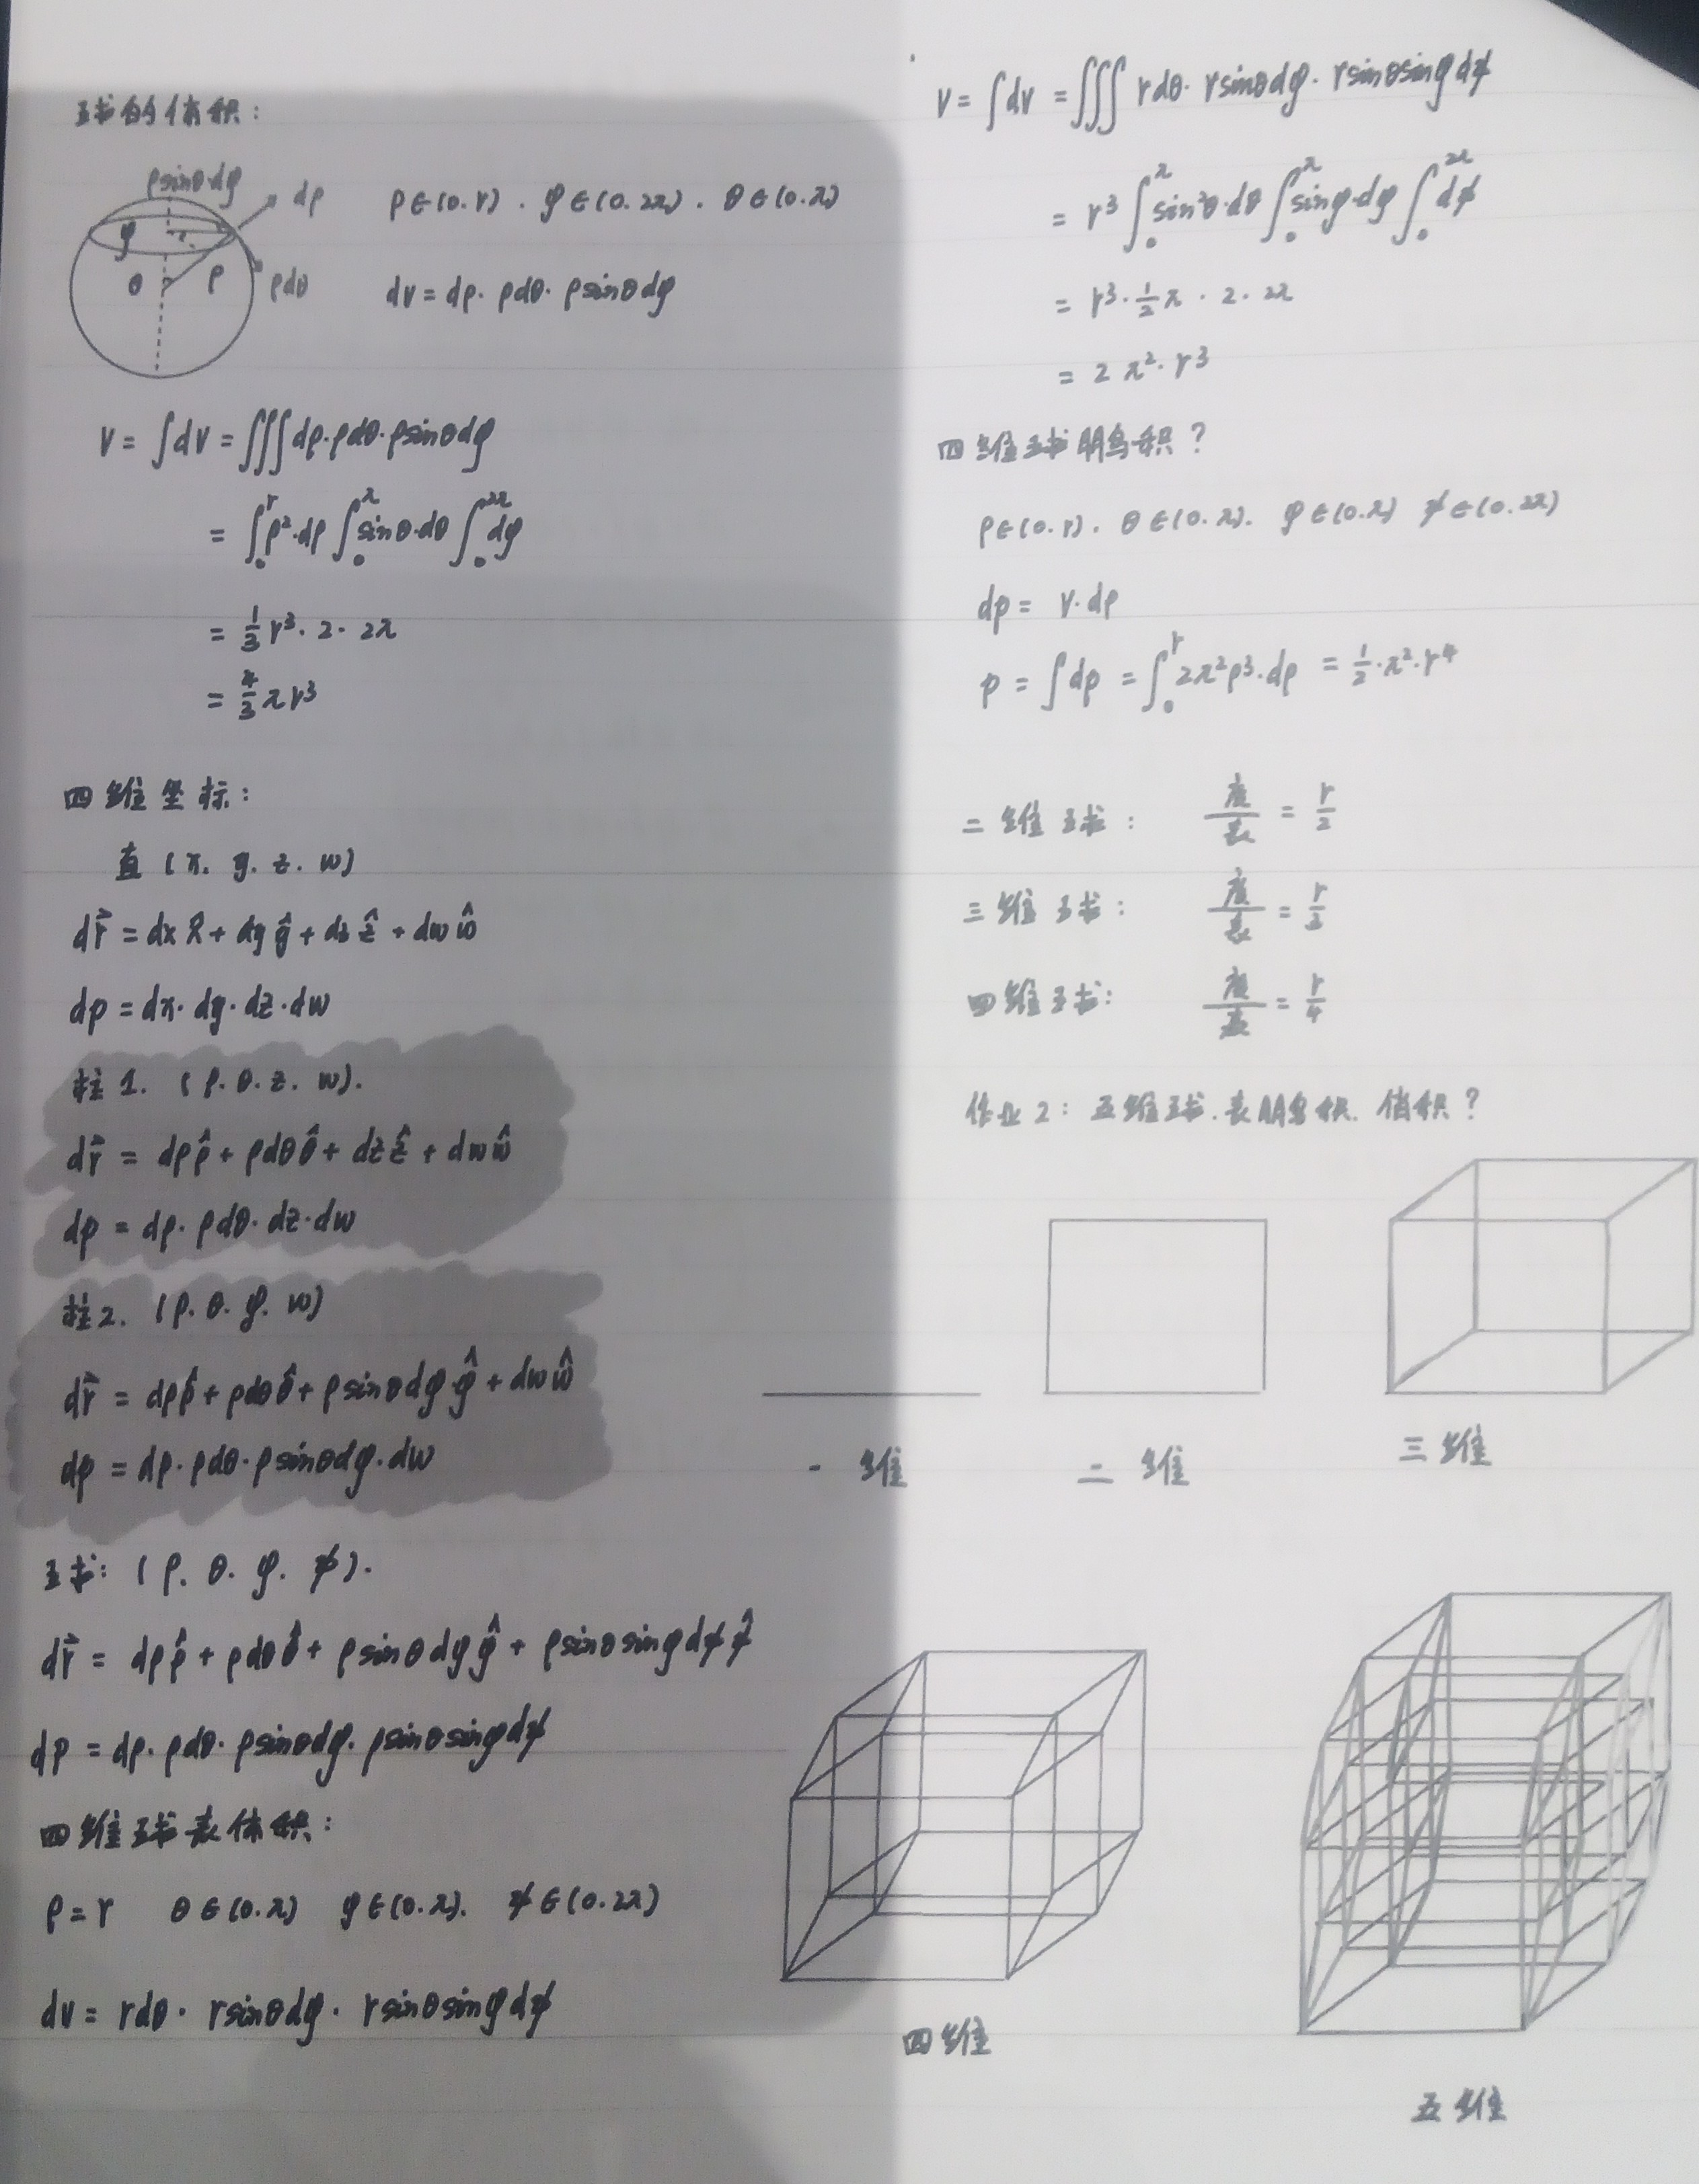 球的体积:
ρsinθdφ
dρ
φ
θ
ρ
ρdθ
ρ∈(0.r) . φ∈(0.2π) . θ∈(0.π)
dv = dρ· ρdθ· ρsinθdφ
V = ∫dV = ∭dρ·ρdθ·ρsinθdφ
= ∫₀ʳρ²·dρ ∫₀^π sinθ·dθ ∫₀^2π dφ
= 1/3 r³· 2· 2π
= 4/3 πr³
四维坐标:
直 (x. y. z. w)
dr⃗ = dx x̂ + dy ŷ + dz ẑ + dw ŵ
dp = dx· dy· dz· dw
柱1. (ρ. θ. z. w).
dr⃗ = dρρ̂ + ρdθθ̂ + dzẑ + dwŵ
dp = dρ· ρdθ· dz· dw
柱2. (ρ. θ. φ. w)
dr⃗ = dρρ̂ + ρdθθ̂ + ρsinθdφφ̂ + dwŵ
dp = dρ·ρdθ·ρsinθdφ·dw
球: (ρ. θ. φ. ψ).
dr⃗ = dρρ̂ + ρdθθ̂ + ρsinθdφφ̂ + ρsinθsinφdψψ̂
dp = dρ· ρdθ· ρsinθdφ· ρsinθsinφdψ
四维球表体积:
ρ=r θ∈(0.π) φ∈(0.π). ψ∈(0.2π)
dv = rdθ· rsinθdφ· rsinθsinφdψ
V = ∫dv = ∭ rdθ· rsinθdφ· rsinθsinφdψ
= r³ ∫₀^π sin²θ·dθ ∫₀^π sinφ·dφ ∫₀^2π dψ
= r³· 1/2 π · 2· 2π
= 2π²· r³
四维球胞积?
ρ∈(0.r). θ∈(0.π). φ∈(0.π) ψ∈(0.2π)
dp = V·dρ
p = ∫dp = ∫₀ʳ 2π²ρ³·dρ = 1/2·π²·r⁴
二维球: 度/表 = r/2
三维球: 度/表 = r/3
四维球: 度/表 = r/4
作业2: 五维球.表胞积. 积?
一维
二维
三维
四维
五维